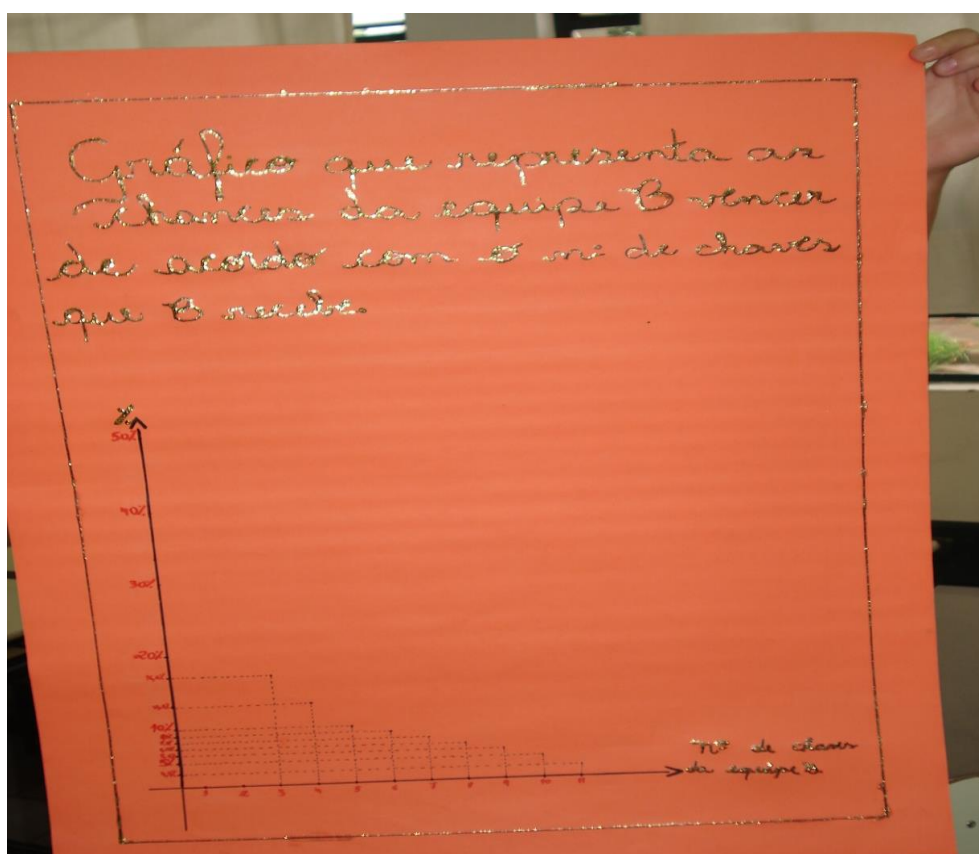 Gráfico que representa as
chances da equipe B vencer
de acordo com o nº de chaves
que B recebe.
50%
40%
30%
20%
10%
1 2 3 4 5 6 7 8 9 10 11
Nº de chaves
da equipe B